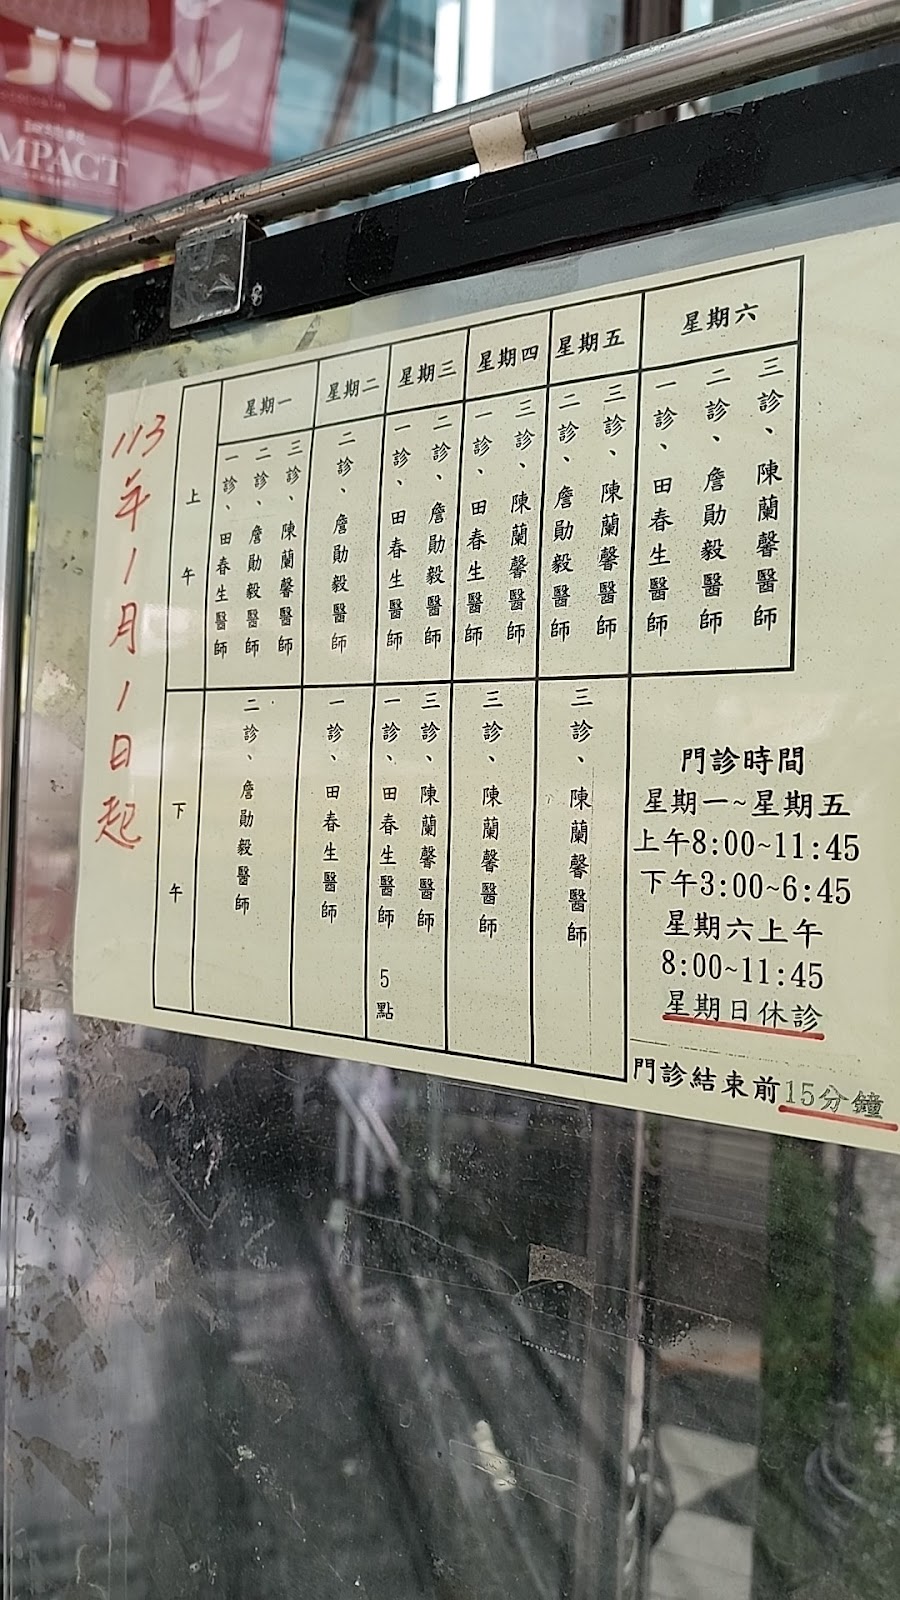 MPACT
113年1月1日起
星期一 星期二 星期三 星期四 星期五 星期六
上午
一診、田春生醫師
二診、詹勛毅醫師
三診、陳蘭馨醫師
二診、詹勛毅醫師
一診、田春生醫師
二診、詹勛毅醫師
一診、田春生醫師
三診、陳蘭馨醫師
二診、詹勛毅醫師
三診、陳蘭馨醫師
一診、田春生醫師
二診、詹勛毅醫師
三診、陳蘭馨醫師
下午
二診、詹勛毅醫師
一診、田春生醫師
一診、田春生醫師 5點
三診、陳蘭馨醫師
三診、陳蘭馨醫師
三診、陳蘭馨醫師
門診時間
星期一~星期五
上午8:00~11:45
下午3:00~6:45
星期六上午
8:00~11:45
星期日休診
門診結束前15分鐘